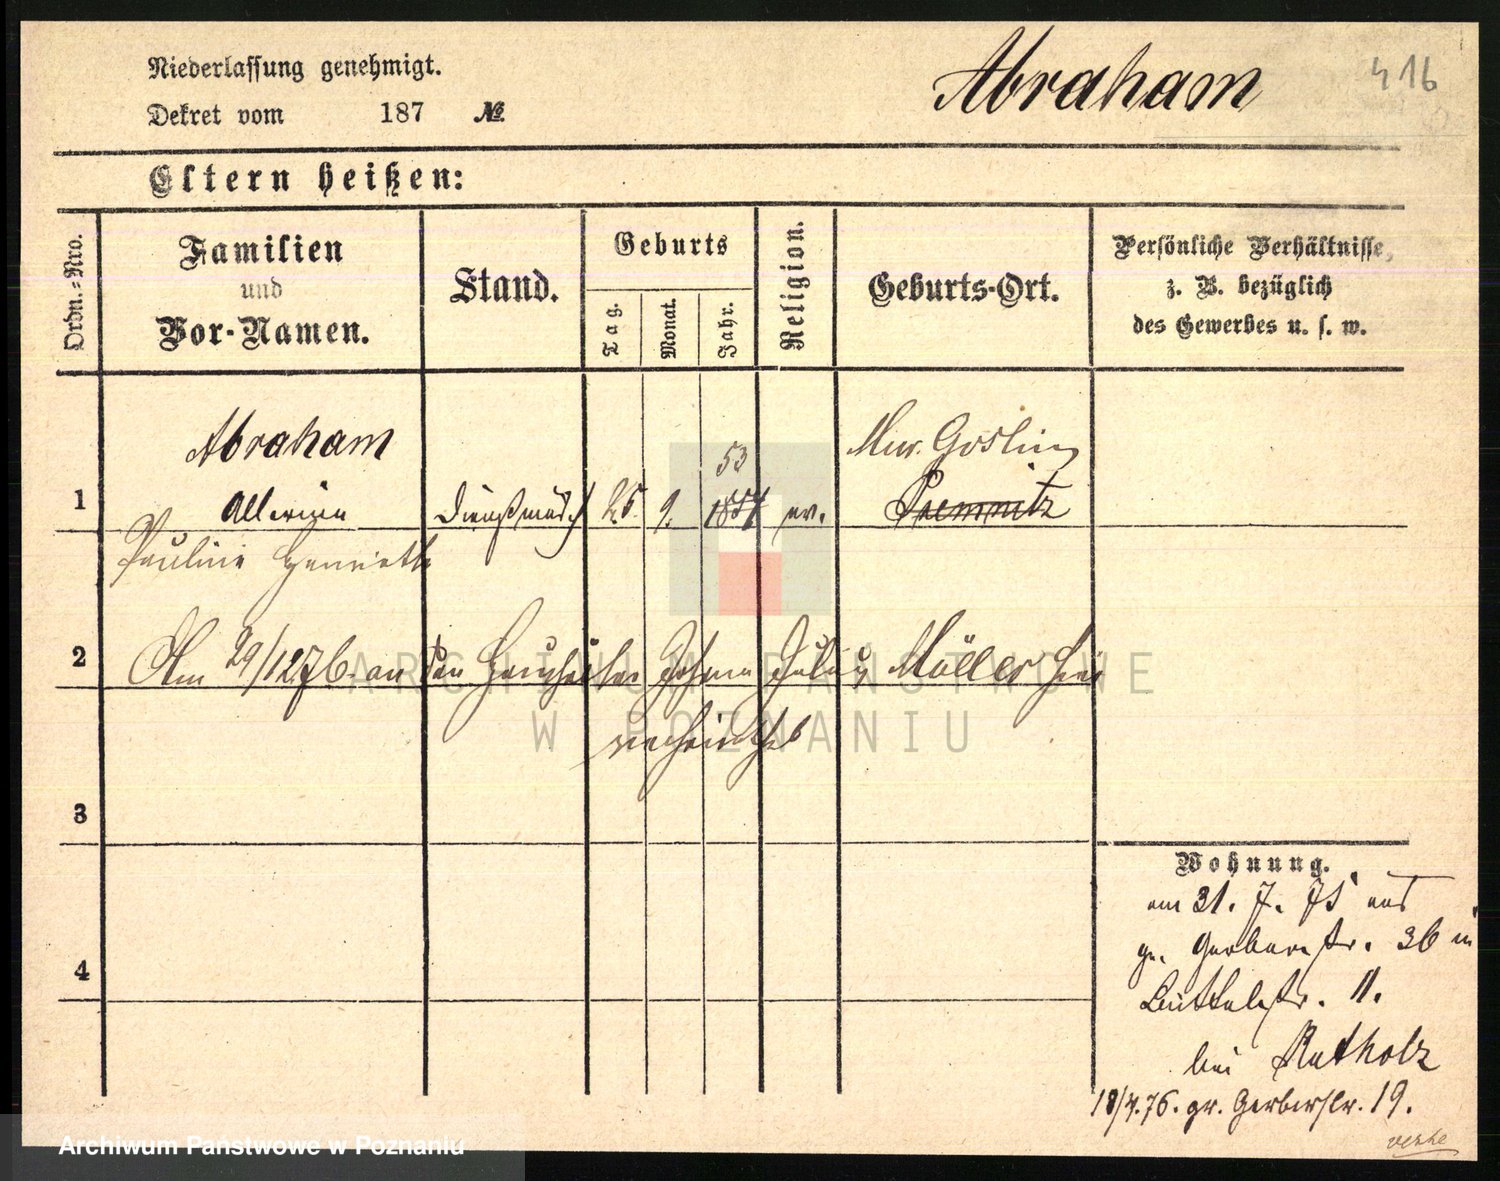 Niederlassung genehmigt.
Dekret vom 187 №
Abraham
416
Eltern heißen:
Ordn.-Nro.
Familien
und
Vor-Namen.
Stand.
Geburts
Tag.
Monat.
Jahr.
Religion.
Geburts-Ort.
Persönliche Verhältnisse,
z. B. bezüglich
des Gewerbes u. s. w.
Abraham
Mur. Goslin
53
1 Dienstmädch 25. 9. 1854 ev. Premnitz
Pauline Henriette
2 Am 29/12 76 an den Haushälter Johann Julius Möller hier
verheirathet
3
4
Wohnung.
am 31. 7. 75 aus
gr. Gerberstr. 36 in
Büttelstr. 11.
bei Ratholz
18/4.76. gr. Gerberstr. 19.
verte
ARCHIWUM PAŃSTWOWE
W POZNANIU
Archiwum Państwowe w Poznaniu